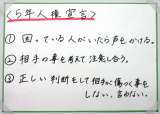 <5年人権宣言>
① 困っている人がいたら声をかける。
② 相手の事を考えて注意し合う。
③ 正しい判断をして相手に傷つく事を
しない、言わない。